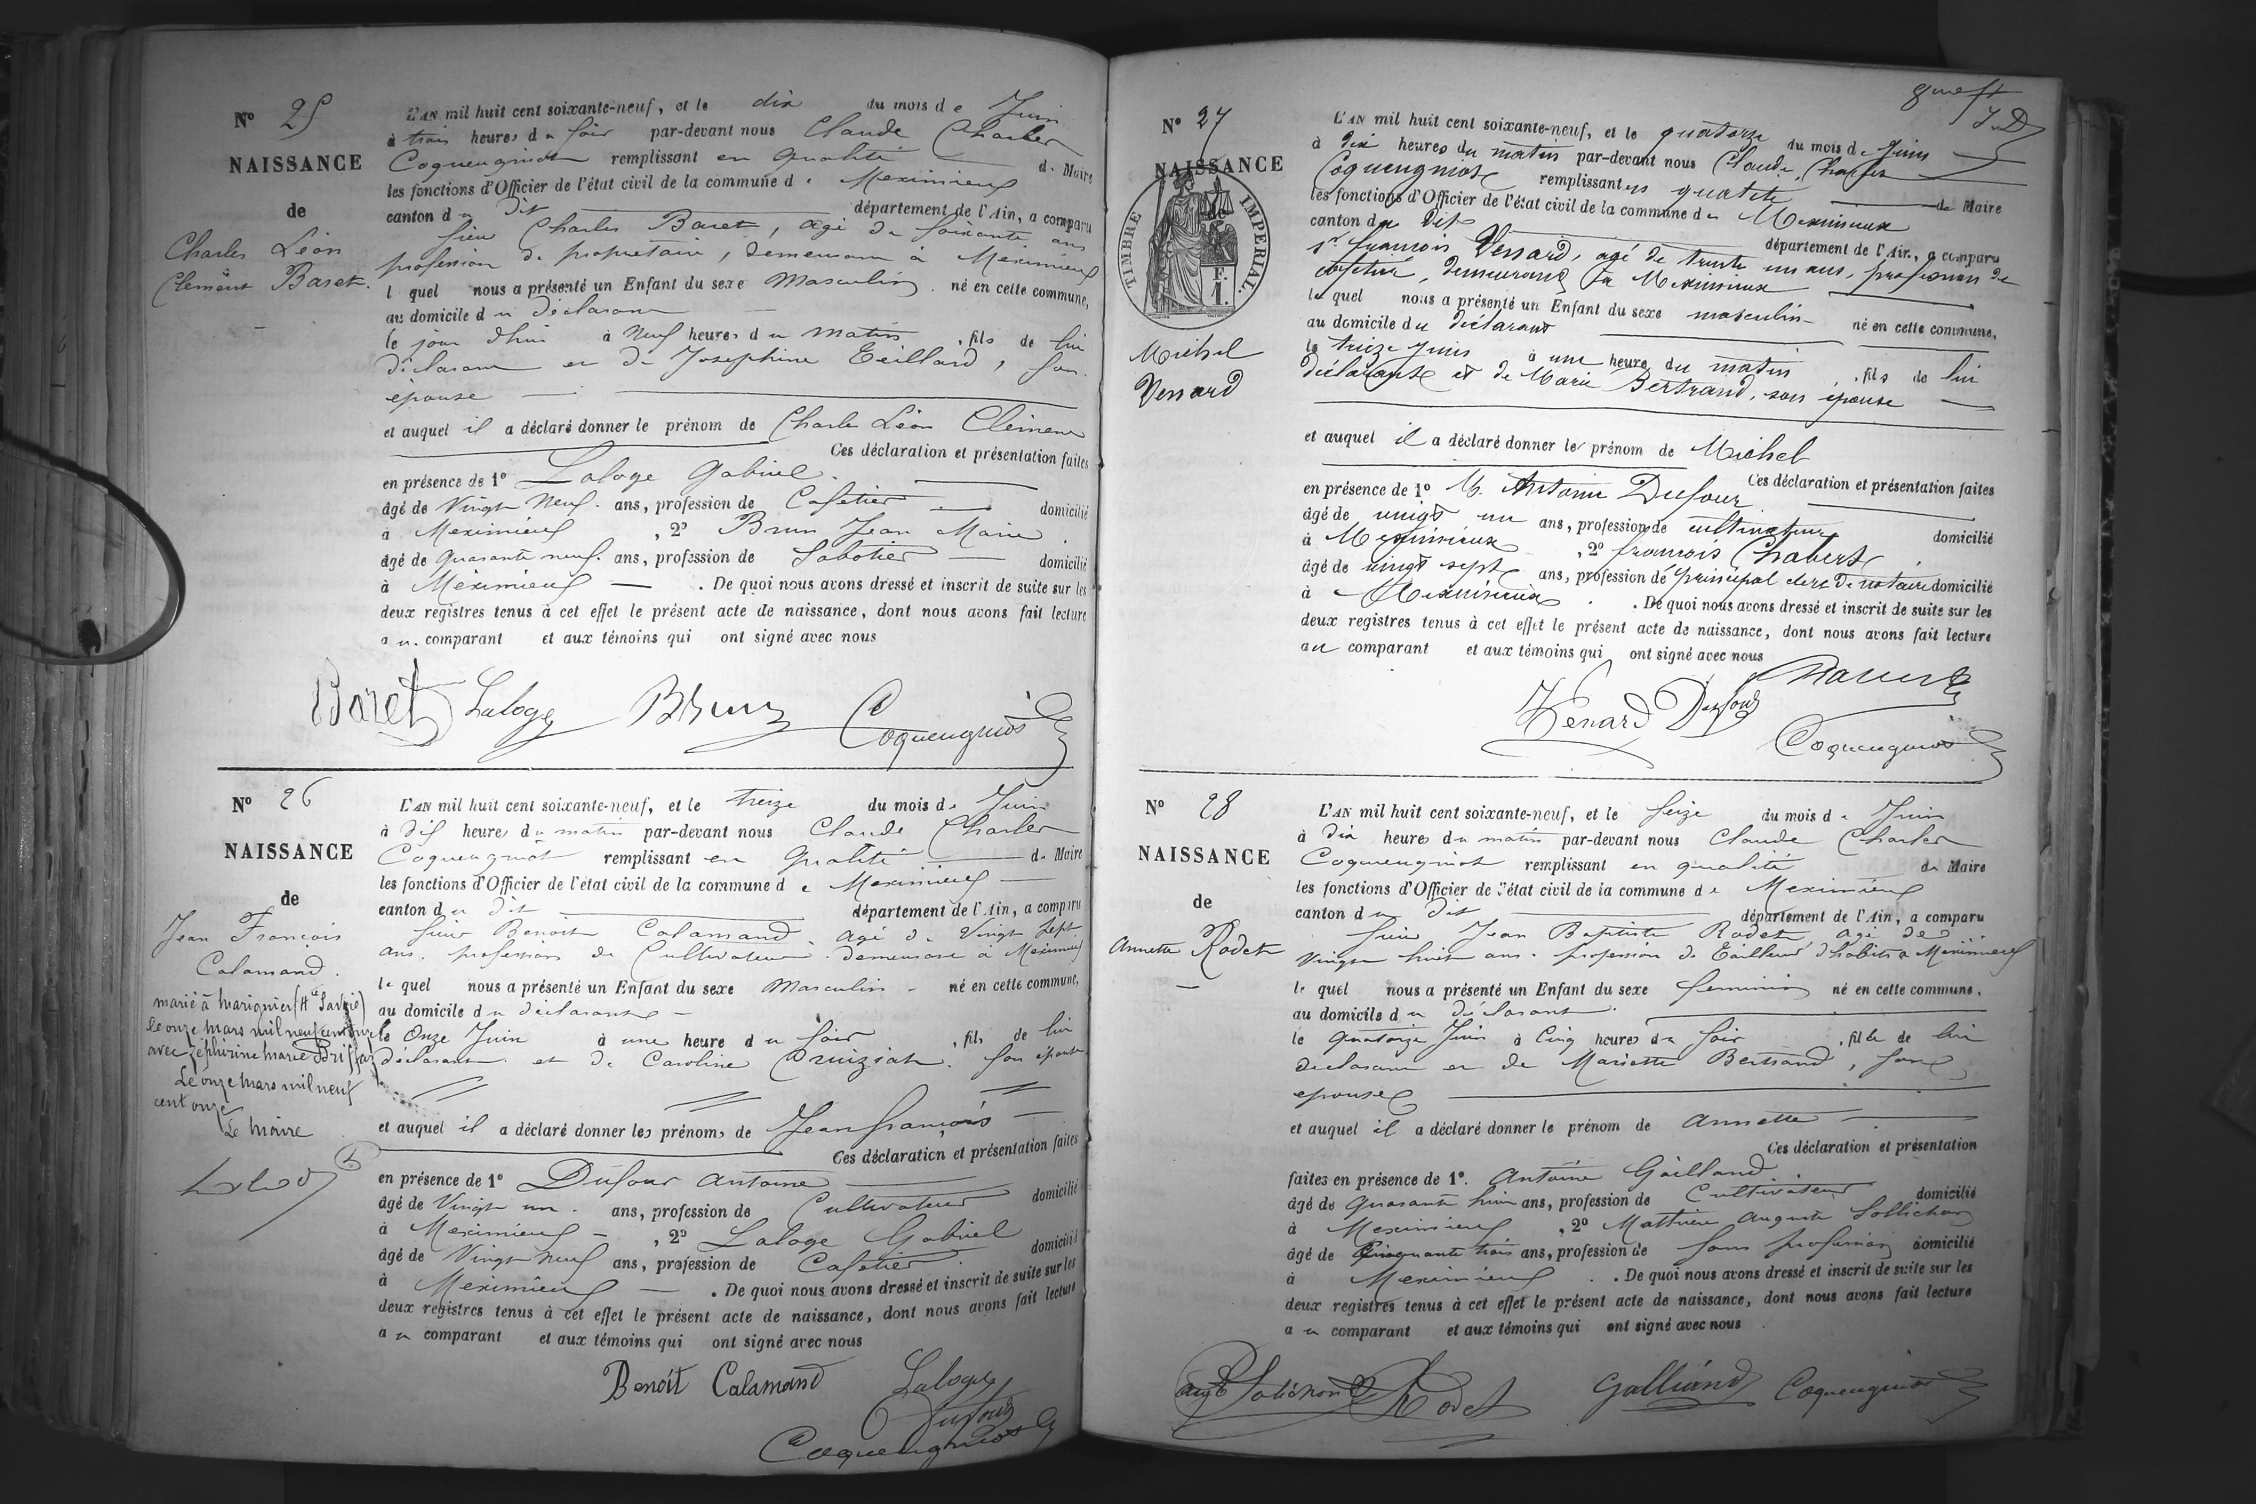 N° 25
NAISSANCE
de
Charles Léon
Clément Baret.
L'AN mil huit cent soixante-neuf, et le dix du mois de Juin
à trois heures du soir par-devant nous Claude Charles
Coqueugniot remplissant en qualité de Maire
les fonctions d'Officier de l'état civil de la commune de Meximieux
canton du dit département de l'Ain, a comparu
sieur Charles Baret, agé de soixante ans
profession de propriétaire, demeurant à Meximieux
lequel nous a présenté un Enfant du sexe Masculin né en cette commune,
au domicile du déclarant
le jour d'hui à Neuf heures du matin, fils de lui
déclarant et de Josephine Teillard, son
épouse
et auquel il a déclaré donner le prénom de Charles Léon Clément
Ces déclaration et présentation faites
en présence de 1° Laloge Gabriel
âgé de Vingt Neuf ans, profession de Cafetier domicilié
à Meximieux, 2° Brun Jean Marie
âgé de Quarante neuf ans, profession de Sabotier domicilié
à Meximieux. De quoi nous avons dressé et inscrit de suite sur les
deux registres tenus à cet effet le présent acte de naissance, dont nous avons fait lecture
au comparant et aux témoins qui ont signé avec nous
Baret Laloge Brun Coqueugniot
N° 26
NAISSANCE
de
Jean François
Calamand.
marié à Marignier (Hte Savoie)
le onze mars mil neuf cent onze
avec Zéphirine Marie
Le onze mars mil neuf
cent onze
Le Maire
L'AN mil huit cent soixante-neuf, et le treize du mois de Juin
à dix heures du matin par-devant nous Claude Charles
Coqueugniot remplissant en qualité de Maire
les fonctions d'Officier de l'état civil de la commune de Meximieux
canton du dit département de l'Ain, a comparu
sieur Benoit Calamand, agé de Vingt Sept
ans, profession de Cultivateur demeurant à Meximieux
lequel nous a présenté un Enfant du sexe Masculin né en cette commune,
au domicile du déclarant
le Onze Juin à une heure du soir, fils de lui
déclarant et de Caroline son épouse
et auquel il a déclaré donner les prénoms de Jean françois
Ces déclaration et présentation faites
en présence de 1° Dufour Antoine
âgé de Vingt un ans, profession de Cultivateur domicilié
à Meximieux, 2° Laloge Gabriel
âgé de Vingt Neuf ans, profession de Cafetier domicilié
à Meximieux. De quoi nous avons dressé et inscrit de suite sur les
deux registres tenus à cet effet le présent acte de naissance, dont nous avons fait lecture
au comparant et aux témoins qui ont signé avec nous
Benoit Calamand Laloge
Dufour
Coqueugniot
N° 27
NAISSANCE
de
TIMBRE IMPERIAL.
F.
1.
Michel
Venard
L'AN mil huit cent soixante-neuf, et le quatorze du mois de Juin
à dix heures du matin par-devant nous Claude, Charles
Coqueugniot remplissant en qualité de Maire
les fonctions d'Officier de l'état civil de la commune de Meximieux
canton du dit département de l'Ain, a comparu
sr. françois Venard, agé de trente un ans, profession de
cafetier, demeurant à Meximieux
lequel nous a présenté un Enfant du sexe masculin né en cette commune,
au domicile du déclarant
le treize juin à une heure du matin, fils de lui
déclarant et de Marie Bertrand, son épouse
et auquel il a déclaré donner le prénom de Michel
Ces déclaration et présentation faites
en présence de 1° M. Antoine Dufour
âgé de vingt un ans, profession de cultivateur domicilié
à Meximieux, 2° françois Chabert
âgé de vingt sept ans, profession de principal clerc de notaire domicilié
à Meximieux. De quoi nous avons dressé et inscrit de suite sur les
deux registres tenus à cet effet le présent acte de naissance, dont nous avons fait lecture
au comparant et aux témoins qui ont signé avec nous
Venard Dufour
Coqueugniot
N° 28
NAISSANCE
de
Annette Rodet
L'AN mil huit cent soixante-neuf, et le seize du mois de Juin
à dix heures du matin par-devant nous Claude Charles
Coqueugniot remplissant en qualité de Maire
les fonctions d'Officier de l'état civil de la commune de Meximieux
canton du dit département de l'Ain, a comparu
sieur Jean Baptiste Rodet agé de
Vingt huit ans, profession de Tailleur d'habits à Meximieux
lequel nous a présenté un Enfant du sexe feminin né en cette commune,
au domicile du déclarant
le Quatorze Juin à Cinq heures du soir, fille de lui
declarant et de Mariette Bertrand, son
epouse
et auquel il a déclaré donner le prénom de Annette
Ces déclaration et présentation
faites en présence de 1°. Antoine Galland
âgé de Quarante huit ans, profession de Cultivateur domicilié
à Meximieux, 2° Matthieu Auguste Sollichon
âgé de Cinquante trois ans, profession de Sans profession domicilié
à Meximieux. De quoi nous avons dressé et inscrit de suite sur les
deux registres tenus à cet effet le présent acte de naissance, dont nous avons fait lecture
au comparant et aux témoins qui ont signé avec nous
Augte Solichon Rodet Galliand Coqueugniot